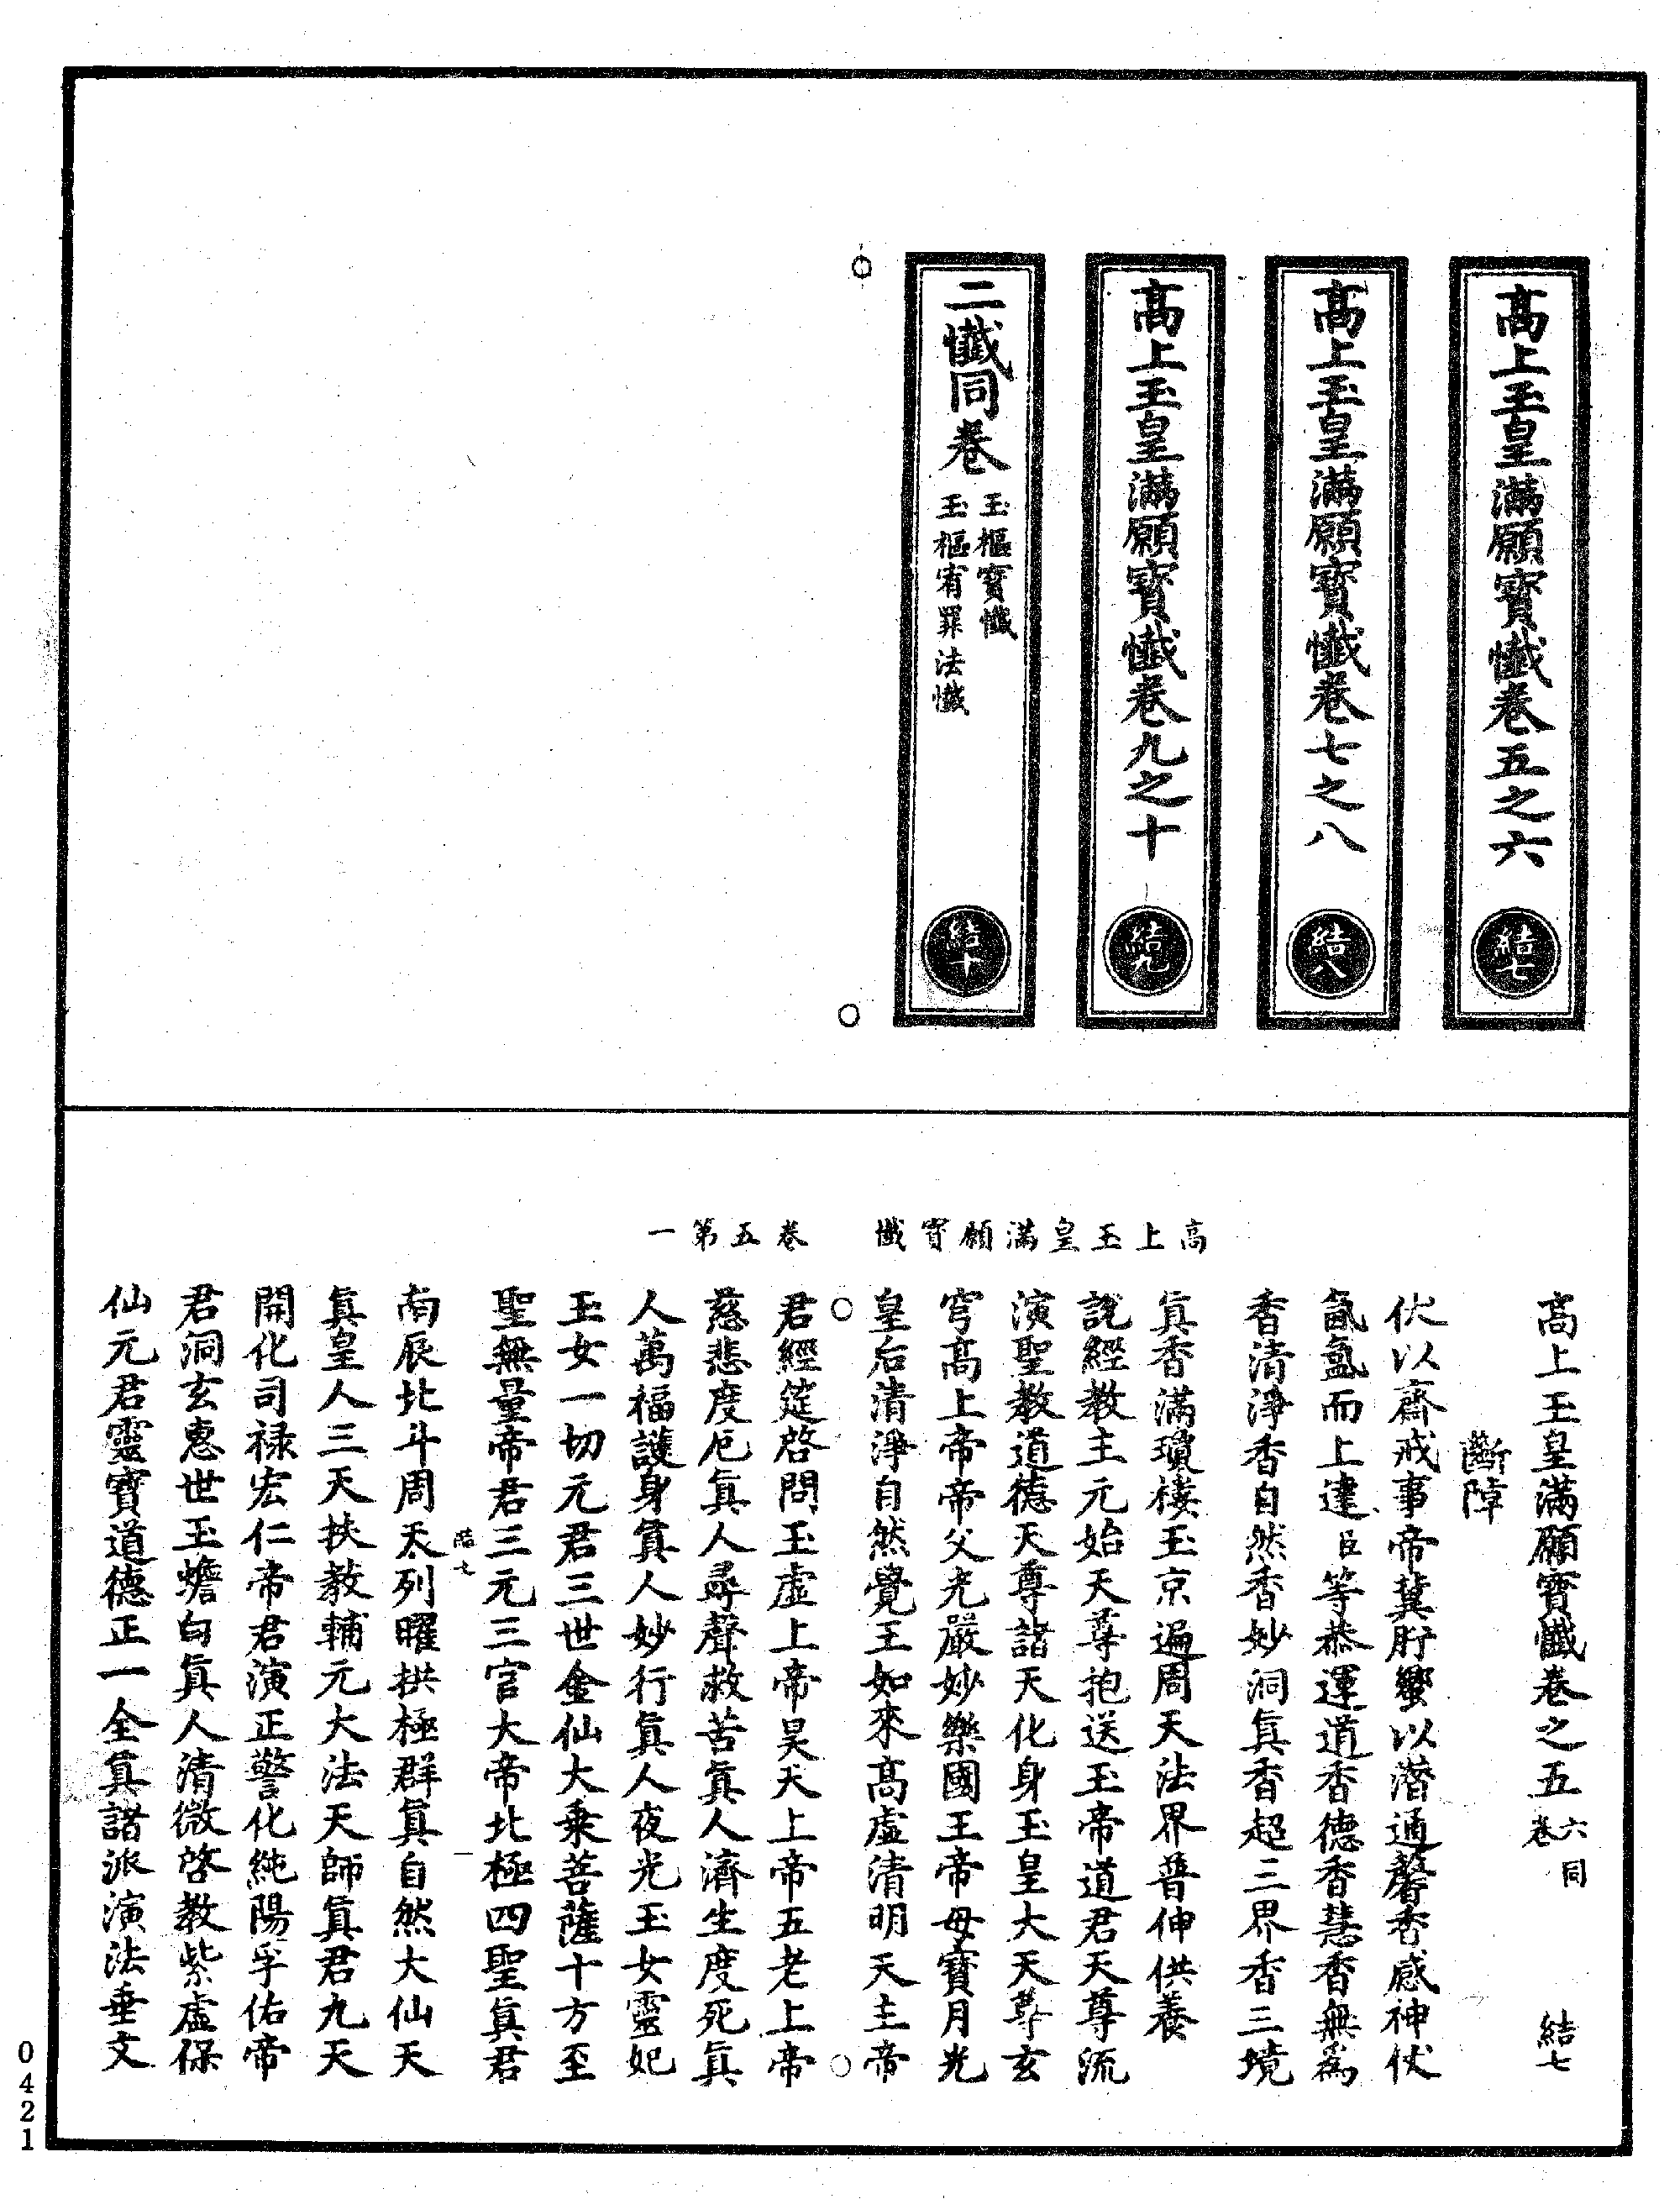 高上玉皇滿願寶懺卷五之六
結七
高上玉皇滿願寶懺卷七之八
結八
高上玉皇滿願寶懺卷九之十
結九
二懺同卷
玉樞寶懺
玉樞宥罪法懺
結十
高上玉皇滿願寶懺卷之五 六同卷 結七
斷障
伏以齋戒事帝冀肸蠁以潛通馨香感神伏
氤氳而上達臣等恭運道香德香慧香無為
香清淨香自然香妙洞真香超三界香三境
真香滿瓊樓玉京遍周天法界普伸供養
說經教主元始天尊抱送玉帝道君天尊流
演聖教道德天尊諸天化身玉皇大天尊玄
穹高上帝帝父光嚴妙樂國王帝母寶月光
皇后清淨自然覺王如來高虛清明天主帝
高上玉皇滿願寶懺 卷五第一
君經筵啓問玉虛上帝昊天上帝五老上帝
慈悲度厄真人尋聲救苦真人濟生度死真
人萬福護身真人妙行真人夜光玉女靈妃
玉女一切元君三世金仙大乘菩薩十方至
聖無量帝君三元三官大帝北極四聖真君
結七 一
南辰北斗周天列曜拱極群真自然大仙天
真皇人三天扶教輔元大法天師真君九天
開化司祿宏仁帝君演正警化純陽孚佑帝
君洞玄惠世玉蟾白真人清微啓教紫虛保
仙元君靈寶道德正一全真諸派演法垂文
0421